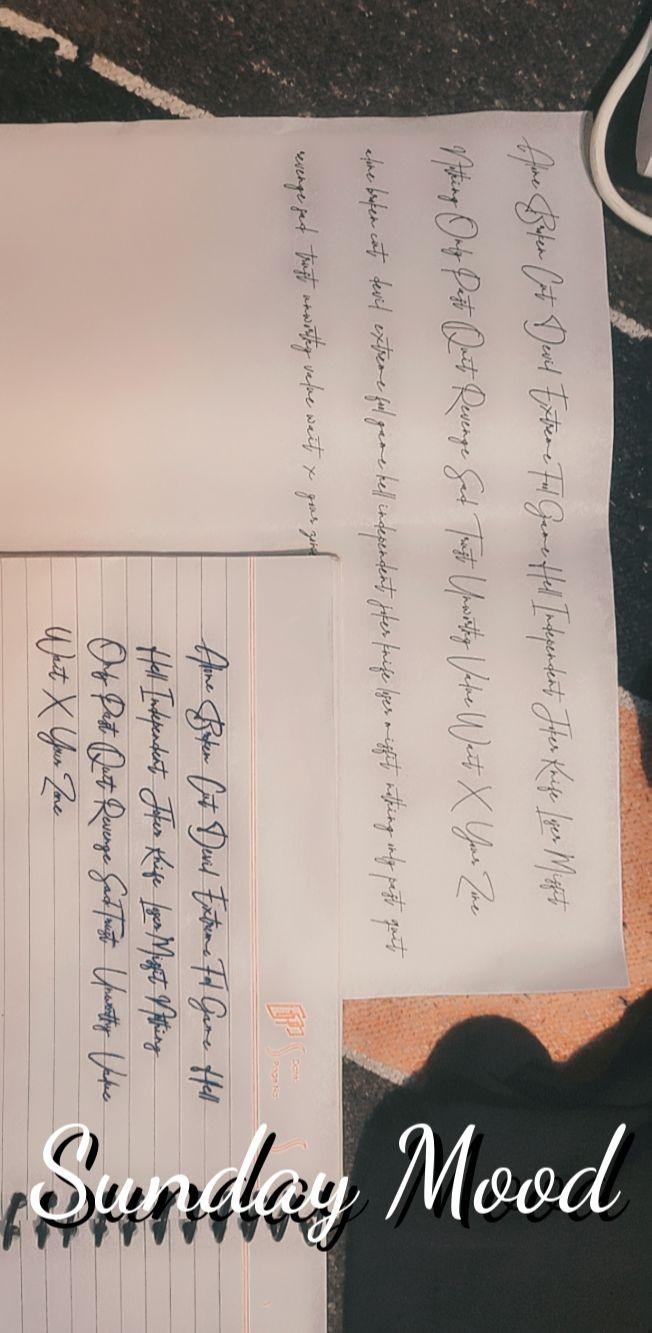 Alone Broken Cut Devil Extreme Fool Game Hell Independent Joker Knife Loser Misfit
Nothing Only Past Quit Revenge Sad Trust Unworthy Value Wait X Your Zone
alone broken cut devil extreme fool game hell independent joker knife loser misfit nothing only past quit
revenge sad trust unworthy value wait x your zone
Alone Broken Cut Devil Extreme Fool Game Hell
Hell Independent Joker Knife Loser Misfit Nothing
Only Past Quit Revenge Sad Trust Unworthy Value
Wait X Your Zone
Date:
Page No:
Sunday Mood